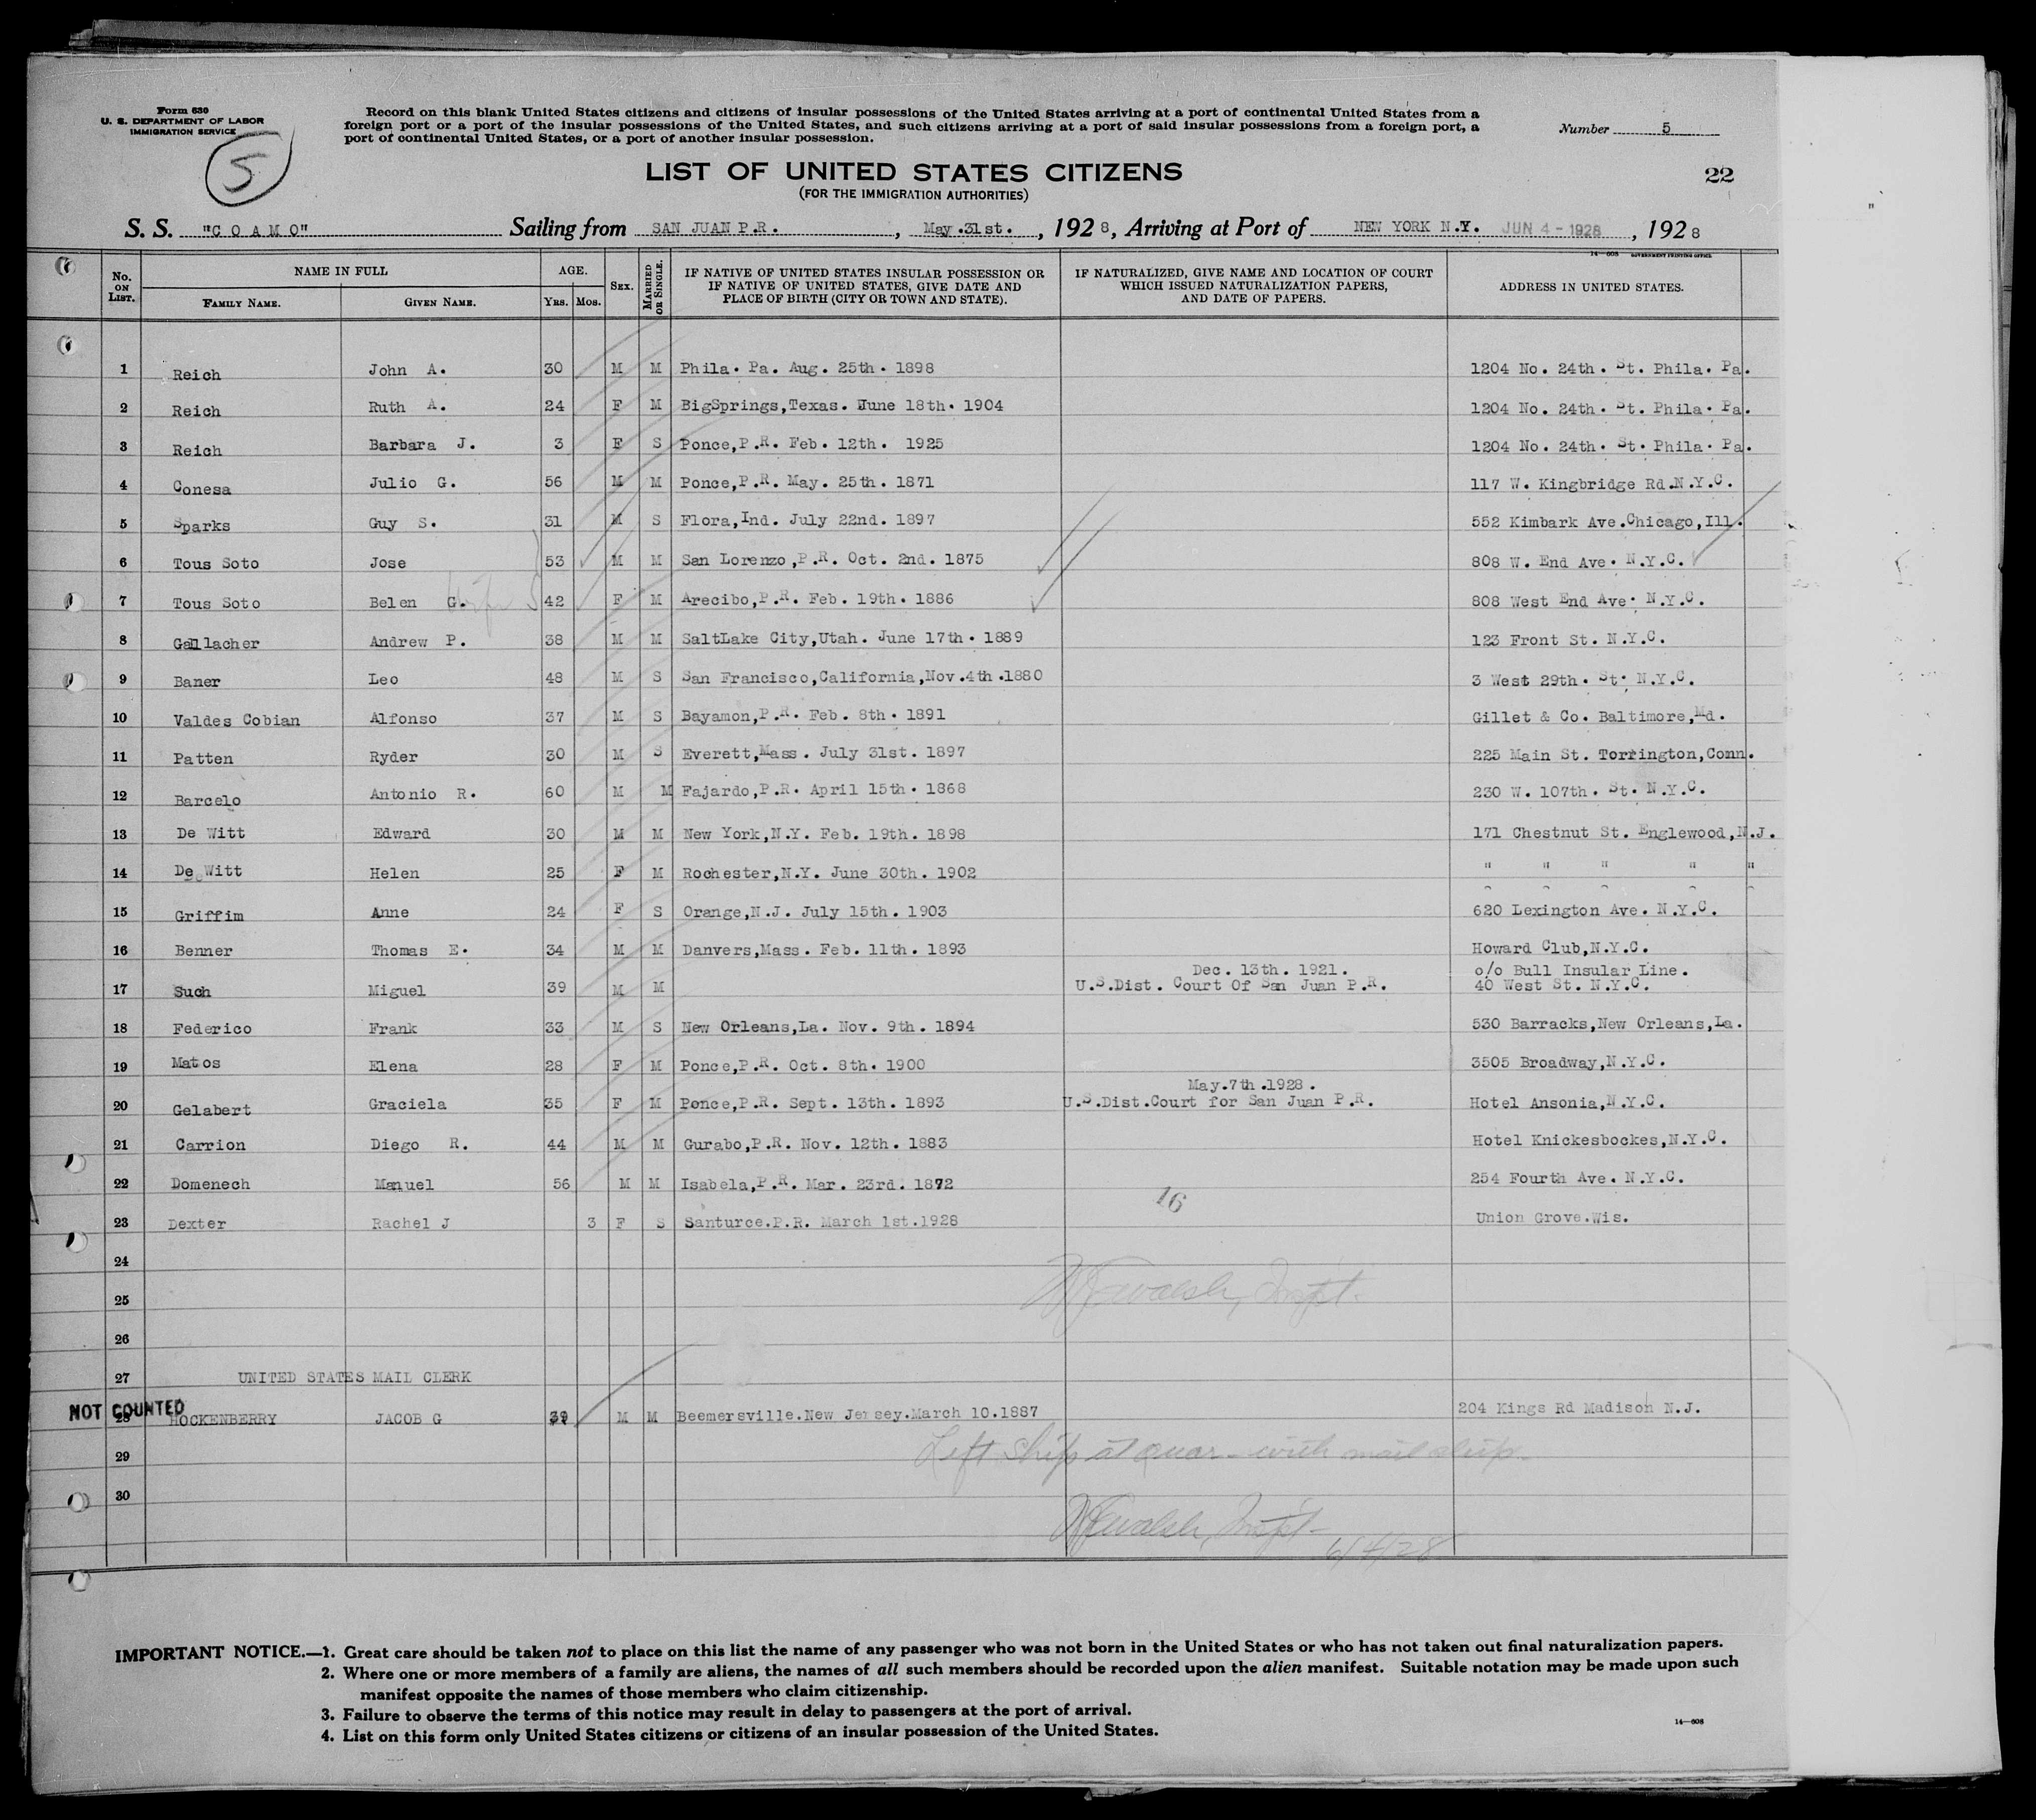 Form 630
U. S. DEPARTMENT OF LABOR
IMMIGRATION SERVICE
5
Record on this blank United States citizens and citizens of insular possessions of the United States arriving at a port of continental United States from a
foreign port or a port of the insular possessions of the United States, and such citizens arriving at a port of said insular possessions from a foreign port, a
port of continental United States, or a port of another insular possession.
Number 5
LIST OF UNITED STATES CITIZENS
(FOR THE IMMIGRATION AUTHORITIES)
22
S. S. "C O A M O" Sailing from SAN JUAN P.R. , May.31st. , 192 8, Arriving at Port of NEW YORK N.Y. JUN 4 - 1928 , 192 8
14—608 GOVERNMENT PRINTING OFFICE
No. ON LIST. NAME IN FULL FAMILY NAME. GIVEN NAME. AGE. YRS. MOS. SEX. MARRIED OR SINGLE. IF NATIVE OF UNITED STATES INSULAR POSSESSION OR IF NATIVE OF UNITED STATES, GIVE DATE AND PLACE OF BIRTH (CITY OR TOWN AND STATE). IF NATURALIZED, GIVE NAME AND LOCATION OF COURT WHICH ISSUED NATURALIZATION PAPERS, AND DATE OF PAPERS. ADDRESS IN UNITED STATES.
1 Reich John A. 30 M M Phila. Pa. Aug. 25th. 1898 1204 No. 24th. St. Phila. Pa.
2 Reich Ruth A. 24 F M BigSprings,Texas. June 18th. 1904 1204 No. 24th. St. Phila. Pa.
3 Reich Barbara J. 3 F S Ponce,P.R. Feb. 12th. 1925 1204 No. 24th. St. Phila. Pa.
4 Conesa Julio G. 56 M M Ponce,P.R. May. 25th. 1871 117 W. Kingbridge Rd.N.Y.C.
5 Sparks Guy S. 31 M S Flora,Ind. July 22nd. 1897 552 Kimbark Ave.Chicago,Ill.
6 Tous Soto Jose 53 M M San Lorenzo,P.R. Oct. 2nd. 1875 808 W. End Ave. N.Y.C.
7 Tous Soto Belen G. 42 F M Arecibo,P.R. Feb. 19th. 1886 808 West End Ave. N.Y.C.
8 Gallacher Andrew P. 38 M M SaltLake City,Utah. June 17th. 1889 123 Front St. N.Y.C.
9 Baner Leo 48 M S San Francisco,California,Nov.4th.1880 3 West 29th. St. N.Y.C.
10 Valdes Cobian Alfonso 37 M S Bayamon,P.R. Feb. 8th. 1891 Gillet & Co. Baltimore,Md.
11 Patten Ryder 30 M S Everett,Mass. July 31st. 1897 225 Main St. Torrington,Conn.
12 Barcelo Antonio R. 60 M M Fajardo,P.R. April 15th. 1868 230 W. 107th. St. N.Y.C.
13 De Witt Edward 30 M M New York,N.Y. Feb. 19th. 1898 171 Chestnut St. Englewood,N.J.
14 De Witt Helen 25 F M Rochester,N.Y. June 30th. 1902 " " " " "
15 Griffim Anne 24 F S Orange,N.J. July 15th. 1903 620 Lexington Ave. N.Y.C.
16 Benner Thomas E. 34 M M Danvers,Mass. Feb. 11th. 1893 Howard Club,N.Y.C.
Dec. 13th. 1921. o/o Bull Insular Line.
17 Such Miguel 39 M M U.S.Dist. Court Of San Juan P.R. 40 West St. N.Y.C.
18 Federico Frank 33 M S New Orleans,La. Nov. 9th. 1894 530 Barracks,New Orleans,La.
19 Matos Elena 28 F M Ponce,P.R. Oct. 8th. 1900 3505 Broadway,N.Y.C.
May.7th.1928.
20 Gelabert Graciela 35 F M Ponce,P.R. Sept. 13th. 1893 U.S.Dist.Court for San Juan P.R. Hotel Ansonia,N.Y.C.
21 Carrion Diego R. 44 M M Gurabo,P.R. Nov. 12th. 1883 Hotel Knickesbockes,N.Y.C.
22 Domenech Manuel 56 M M Isabela,P.R. Mar. 23rd. 1872 254 Fourth Ave. N.Y.C.
16
23 Dexter Rachel J 3 F S Santurce.P.R. March 1st.1928 Union Grove.Wis.
24
Walsh, Inspt.
25
26
27 UNITED STATES MAIL CLERK
NOT COUNTED
28 HOCKENBERRY JACOB G 39 M M Beemersville.New Jersey.March 10.1887 204 Kings Rd Madison N.J.
Left ship at quar - with mail ship.
29
30
Walsh, Inspt -
6/4/28
IMPORTANT NOTICE.—1. Great care should be taken not to place on this list the name of any passenger who was not born in the United States or who has not taken out final naturalization papers.
2. Where one or more members of a family are aliens, the names of all such members should be recorded upon the alien manifest. Suitable notation may be made upon such
manifest opposite the names of those members who claim citizenship.
3. Failure to observe the terms of this notice may result in delay to passengers at the port of arrival.
4. List on this form only United States citizens or citizens of an insular possession of the United States.
14—608